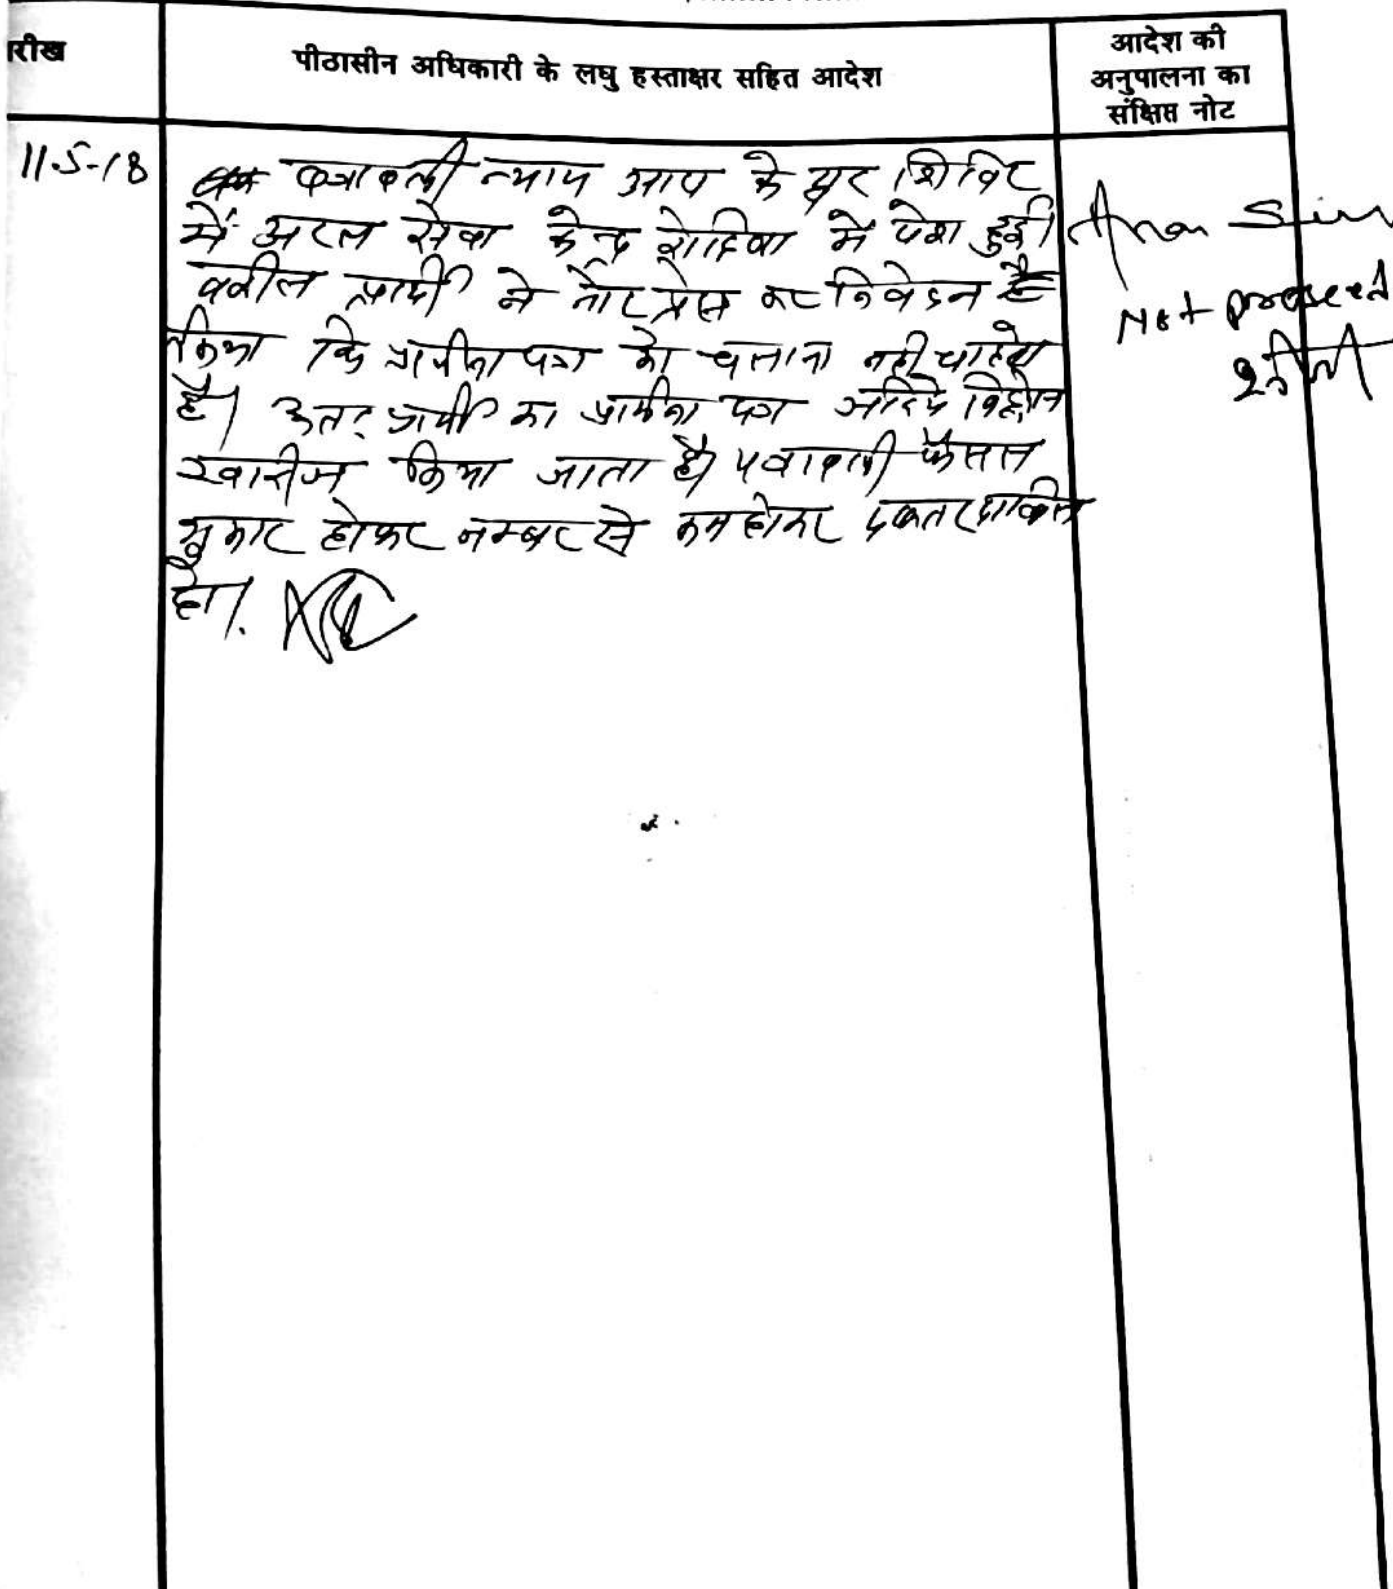 रीख
पीठासीन अधिकारी के लघु हस्ताक्षर सहित आदेश
आदेश की
अनुपालना का
संक्षिप्त नोट
11-5-18
पत्रावली न्याय आप के द्वार शिविर
में अटल सेवा केन्द्र में पेश हुई।
वकील प्रार्थी ने नोट प्रेस कर निवेदन
किया कि प्रार्थना पत्र को चलाना नहीं चाहते
है। अतः प्रार्थी का प्रार्थना पत्र
खारीज किया जाता है। पत्रावली फैसल
सुमार होकर नम्बर से कम होकर दफ्तर दाखिल
हो।
Not pressed